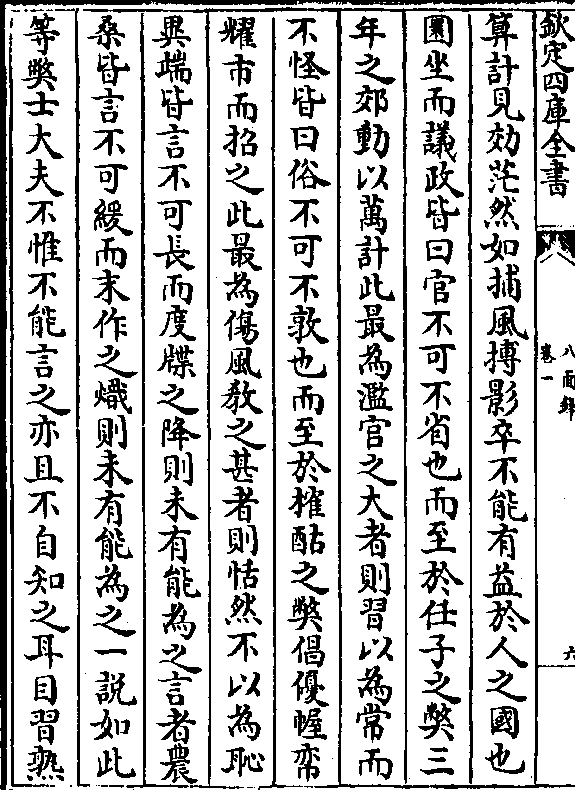 欽定四庫全書
八面鋒
卷一
六
算計見効茫然如捕風搏影卒不能有益於人之國也
圜坐而議政皆曰官不可不省也而至於任子之弊三
年之郊動以萬計此最為濫官之大者則習以為常而
不怪皆曰俗不可不敦也而至於榷酤之弊倡優幄帟
耀市而招之此最為傷風敎之甚者則恬然不以為恥
異端皆言不可長而度牒之降則未有能為之言者農
桑皆言不可緩而末作之熾則未有能為之一說如此
等弊士大夫不惟不能言之亦且不自知之耳目習熟